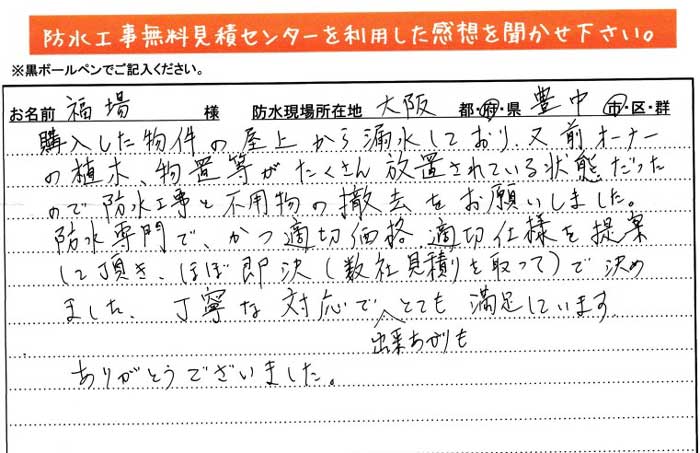 防水工事無料見積センターを利用した感想を聞かせ下さい。
※黒ボールペンでご記入ください。
お名前 福場 様 防水現場所在地 大阪 都・府・県 豊中 市・区・群
購入した物件の屋上から漏水しており、又前オーナー
の植木、物置等がたくさん放置されている状態だった
ので防水工事と不用物の撤去をお願いしました。
防水専門で、かつ適切価格 適切仕様を提案
して頂き、ほぼ即決(数社見積りを取って)で決め
ました。丁寧な対応でとても満足しています
出来あがりも
ありがとうございました。